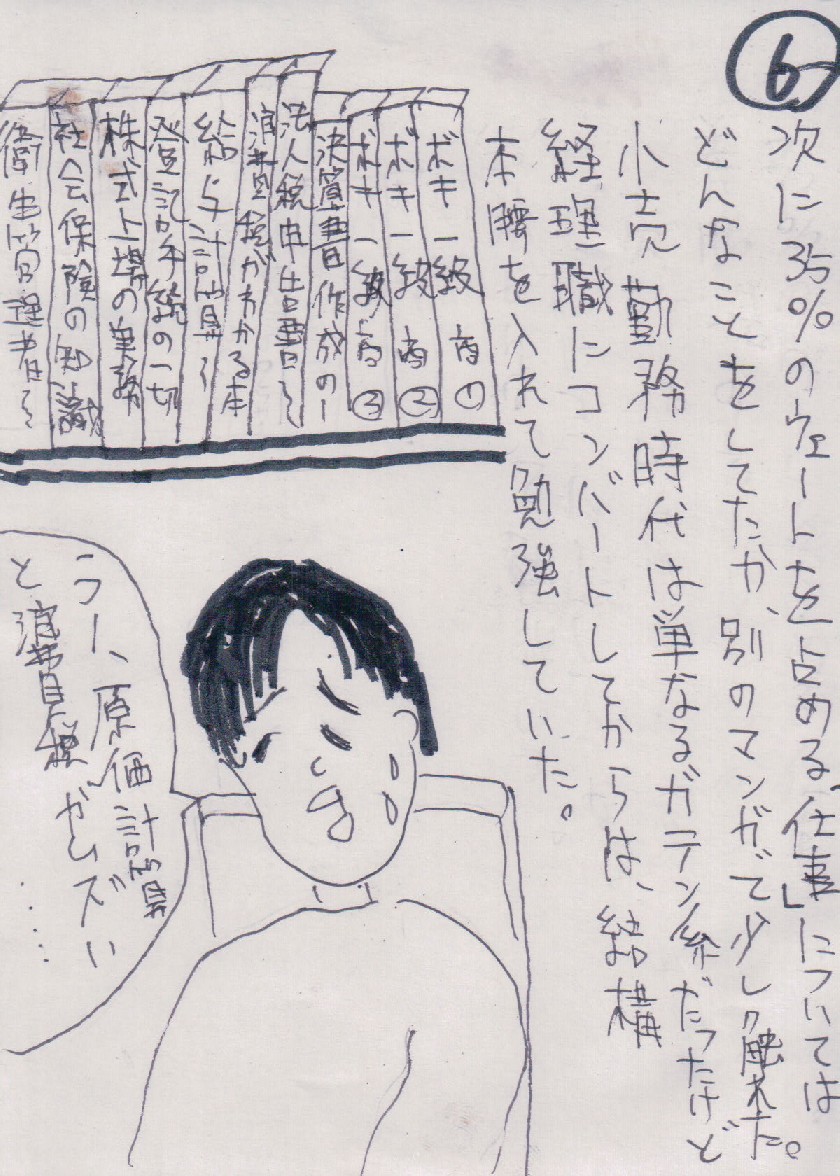 6
次に35%のウェートを占める「仕事」については
どんなことをしてたか、別のマンガで少しク触れた。
小売勤務時代は単なるガテン系だったけど
経理職にコンバートしてからは、結構
本腰を入れて勉強していた。
ボキ一級商①
ボキ一級商②
ボキ一級商③
決算書作成の〜
法人税申告書〜
消費税がわかる本
給与計算〜
登記が手続の一切
株式上場の実務
社会保険の知識
衛生管理者〜
うー、原価計算
と消費税がムズい
……